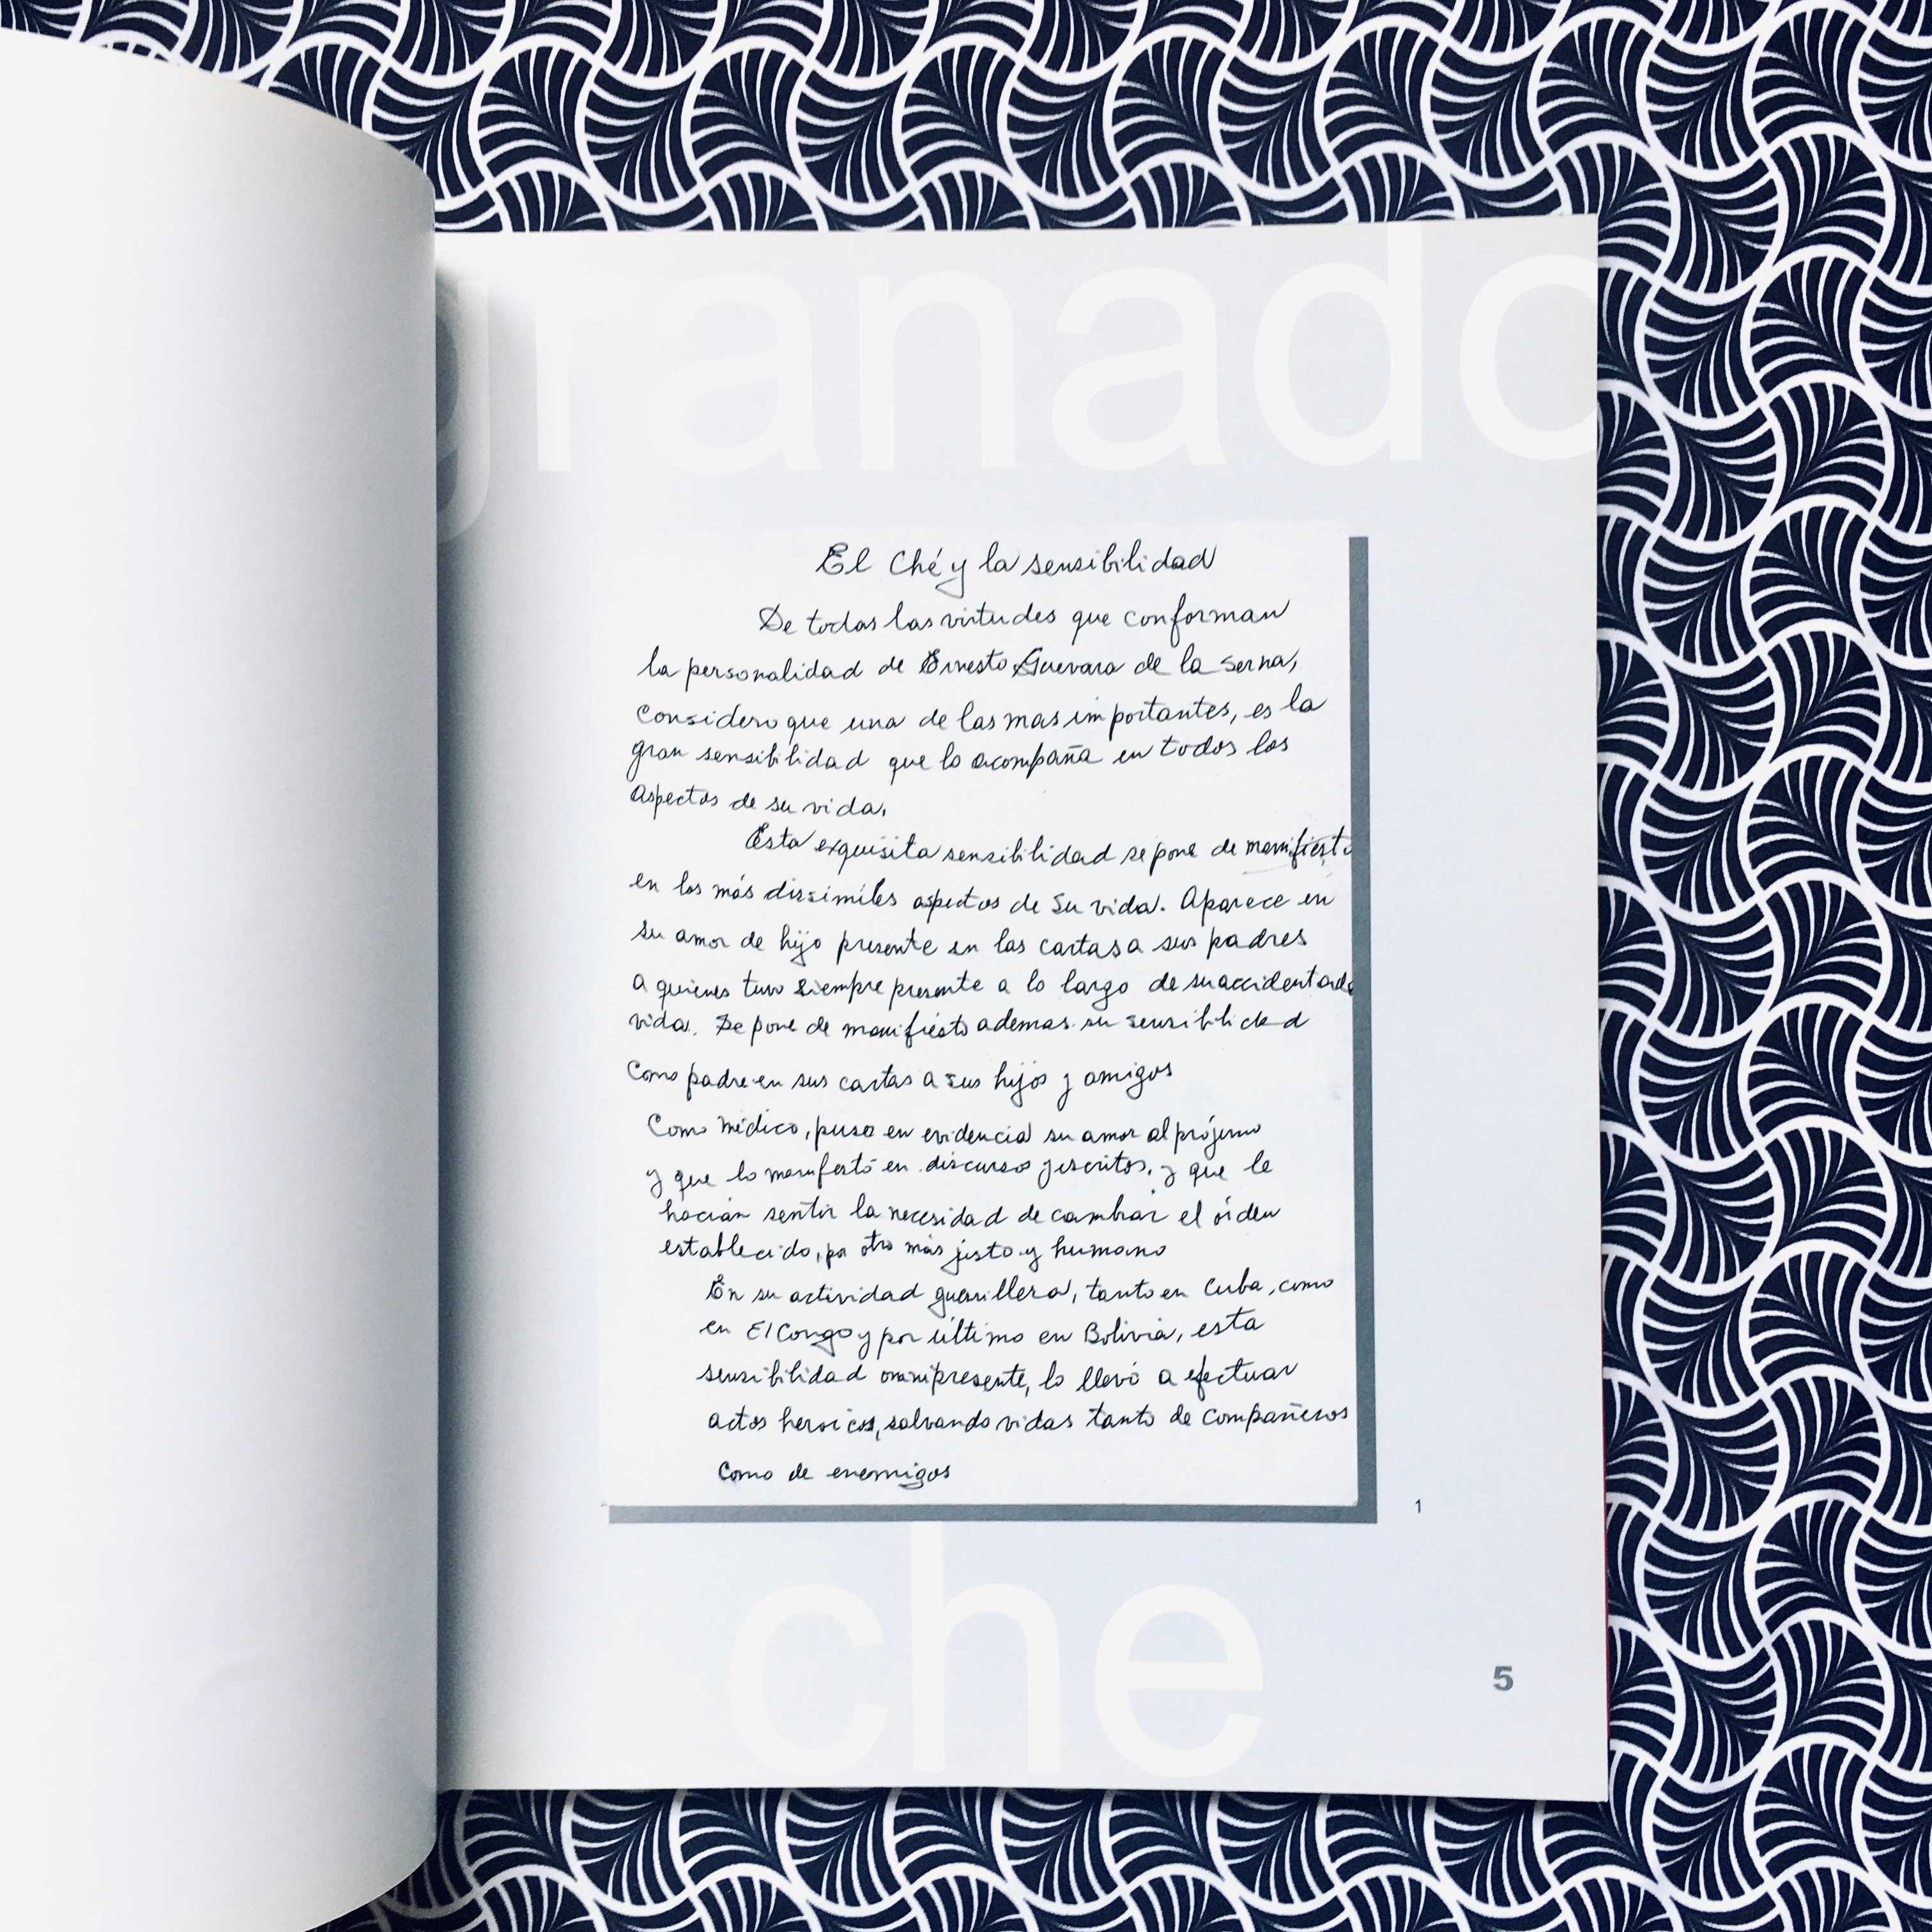 granado
El Ché y la sensibilidad
De todas las virtudes que conforman
la personalidad de Ernesto Guevara de la Serna,
considero que una de las mas importantes, es la
gran sensibilidad que lo acompaña en todos los
aspectos de su vida.
Esta exquisita sensibilidad se pone de manifiesto
en los más dissimiles aspectos de su vida. Aparece en
su amor de hijo presente en las cartas a sus padres
a quienes tuvo siempre presente a lo largo de su accidentada
vida. Se pone de manifiesto ademas su sensibilidad
como padre en sus cartas a sus hijos y amigos
Como médico, puso en evidencia su amor al prójimo
y que lo manifestó en discurso y escritos, y que le
hacian sentir la necesidad de cambiar el órden
establecido, por otro más justo y humano
En su actividad guerrillera, tanto en Cuba, como
en El Congo y por último en Bolivia, esta
sensibilidad omnipresente, lo llevó a efectuar
actos heroicos, salvando vidas tanto de compañeros
como de enemigos
1
che
5